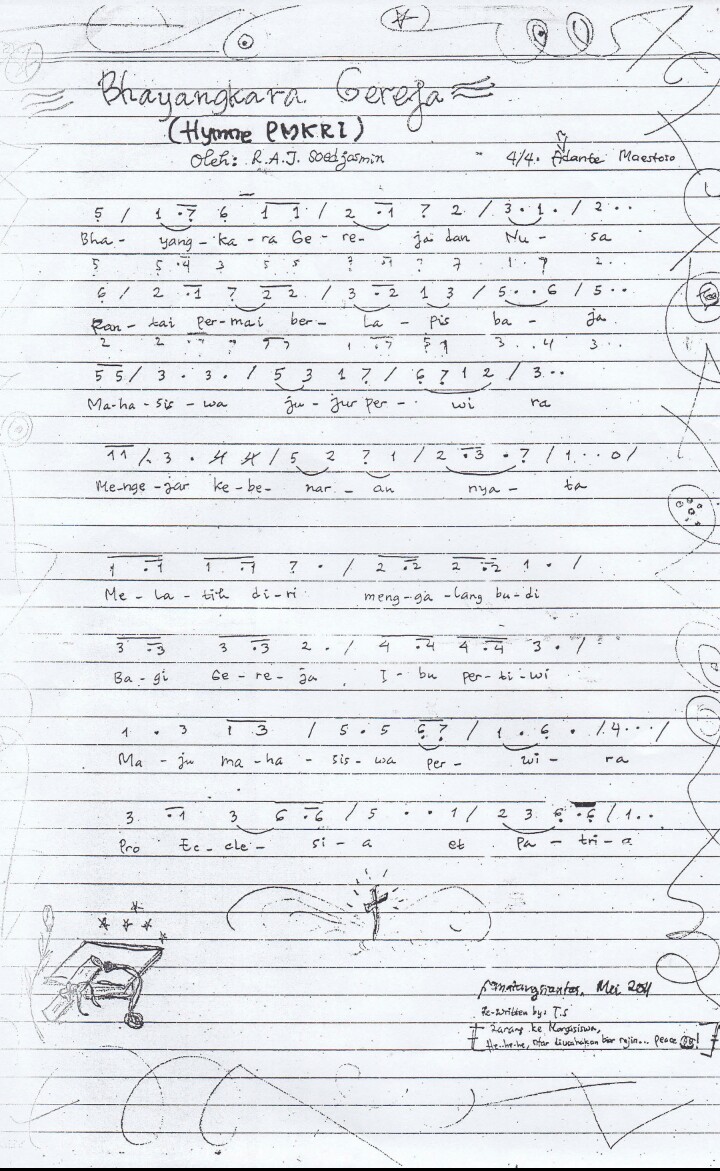 Bhayangkara Gereja
(Hymne PMKRI)
Oleh: R.A.J. Soedjasmin - 4/4. Adante Maestoso
5 / 1 .7 6 1 1 / 2 .1 7 2 / 3 . 1 . / 2 . .
Bha - yang - ka - ra Ge - re - ja dan Nu - sa
5 5 .4 3 5 5 7 .1 7 7 1 . 7 2 .
6 / 2 .1 7 2 2 / 3 .2 1 3 / 5 . . 6 / 5 . .
Ran - tai per - mai ber - La - pis ba - ja
2 2 .7 7 7 7 1 .7 5 1 3 . 4 3 . .
5 5 / 3 . 3 . / 5 3 1 7 / 6 7 1 2 / 3 . .
Ma - ha - sis - wa ju - jur per - wi ra
1 1 / 3 . 4 4 / 5 2 7 1 / 2 .3 . 7 / 1 . . 0 /
Me - nge - jar ke - be - nar - an nya - ta
1 .1 1 .1 7 . / 2 .2 2 .2 1 . /
Me - La - tih di - ri meng - ga - lang bu - di
3 .3 3 .3 2 . / 4 .4 4 .4 3 . /
Ba - gi Ge - re - ja I - bu per - ti - wi
1 . 3 1 3 / 5 . 5 6 7 / 1 . 6 . / 4 . . . /
Ma - ju ma - ha - sis - wa per - wi - ra
3 .1 3 6 .6 / 5 . . 1 / 2 3 6 .6 / 1 . .
Pro Ec - cle - si - a et pa - tri - a
Mei 2011
Re-written by: T.S
Larang ke Margasiswa,
He..he-he, biar rajin... peace !